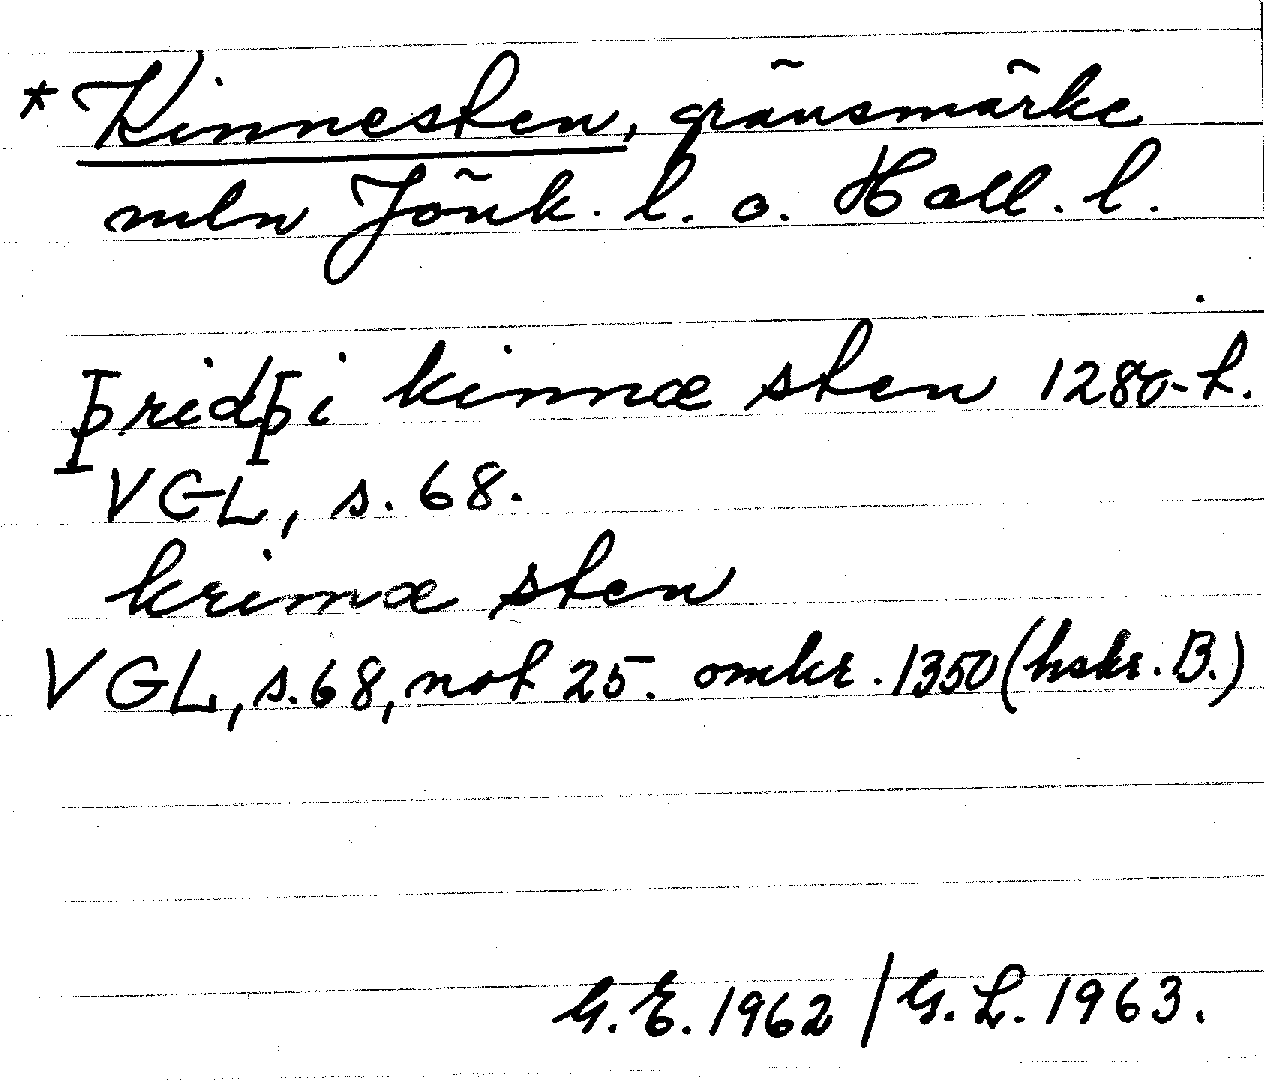 * Kinnesten, gränsmärke
mln Jönk. l. o. Hall. l.
þridþi kinnæ sten 1280-t.
VGL, s. 68.
krimæ sten
VGL, s. 68, not 25. omkr. 1350 (hskr. B.)
G. E. 1962 / G. L. 1963.